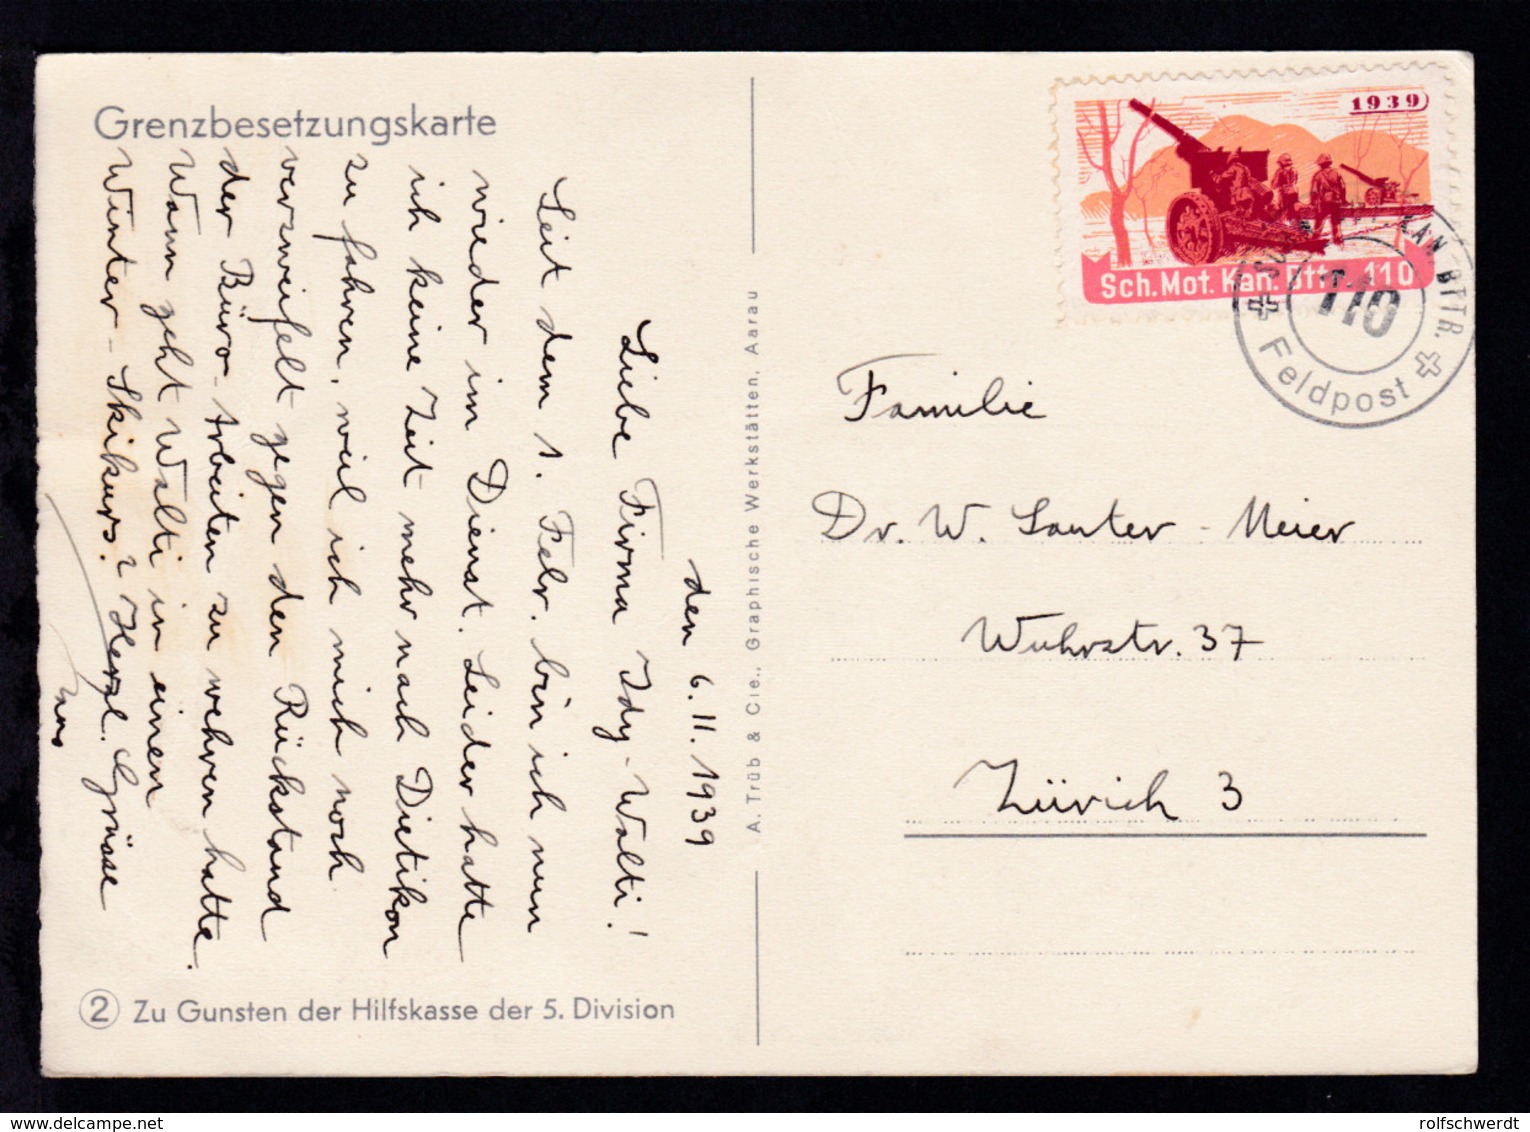 Grenzbesetzungskarte
den 6. II. 1939
Liebe Firma Idy-Walti!
Seit dem 1. Febr. bin ich nun
wieder im Dienst. Leider hatte
ich keine Zeit mehr nach Dietikon
zu fahren, weil ich mich noch
verzweifelt gegen den Rückstand
der Büro-Arbeiten zu wehren hatte.
Wann geht Walti in einen
Winter-Skikurs? Herzl. Grüsse
② Zu Gunsten der Hilfskasse der 5. Division
A. Trüb & Cie., Graphische Werkstätten, Aarau
1939
Sch. Mot. Kan. Bttr. 110
KAN. BTTR.
110
Feldpost
Familie
Dr. W. Sauter-Meier
Wuhrstr. 37
Zürich 3
rolfschwerdt